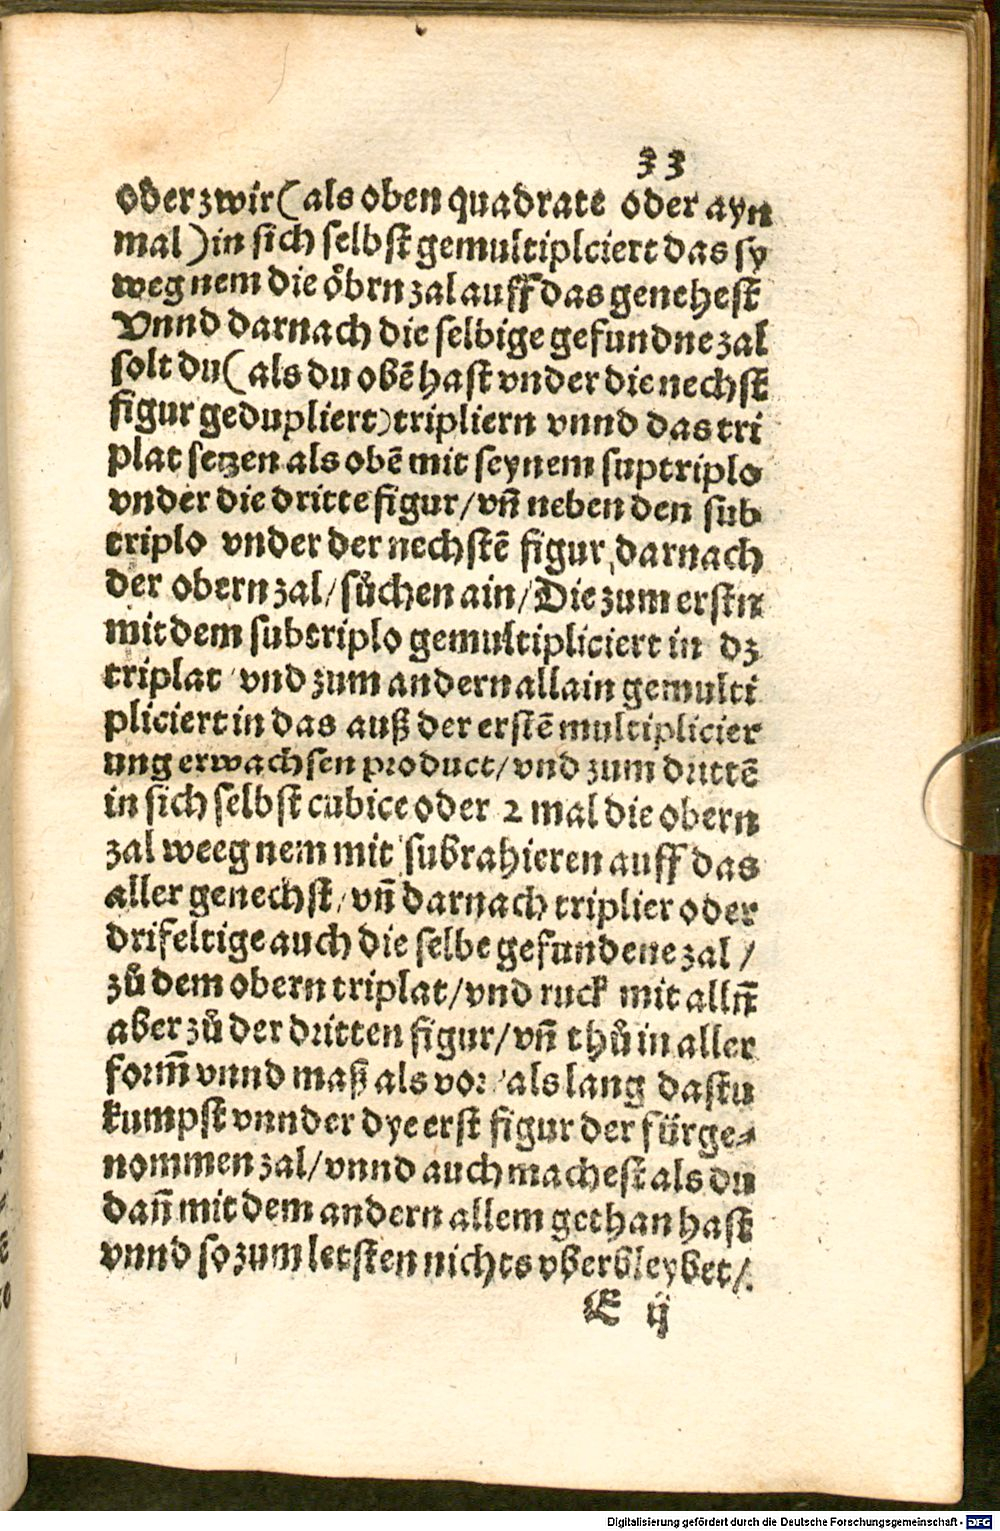 33
oder zwir (als oben quadrate oder ayn
mal) in sich selbst gemultiplciert das sy
weg nem die öbrn zal auff das genehest
Vnnd darnach die selbige gefundne zal
solt du (als du obē hast vnder die nechst
figur gedupliert) tripliern vnnd das tri
plat setzen als obē mit seynem suptriplo
vnder die dritte figur / vn̄ neben den sub
triplo vnder der nechstē figur, darnach
der obern zal / sůchen ain / Die zum erstn
mit dem subtriplo gemultipliciert in dz
triplat / vnd zum andern allain gemulti
pliciert in das auß der erstē multiplicier
ung erwachsen product / vnd zum drittē
in sich selbst cubice oder 2 mal die obern
zal weeg nem mit subrahieren auff das
aller genechst / vn̄ darnach triplier oder
drifeltige auch die selbe gefundene zal /
zů dem obern triplat / vnd ruck mit alln̄
aber zů der dritten figur / vn̄ thů in aller
form̄ vnnd maß als vor / als lang dastu
kumpst vnnder dye erst figur der fürge⸗
nommen zal / vnnd auch machest als du
dan̄ mit dem andern allem gethan hast
vnnd so zum letsten nichts vberbleybet /.
E ij
Digitalisierung gefördert durch die Deutsche Forschungsgemeinschaft - DFG